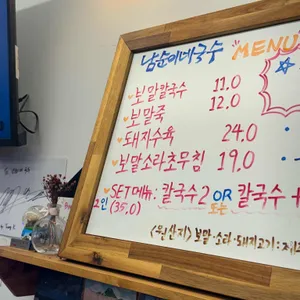 남순이네국수 "MENU
보말칼국수 11.0
보말죽 12.0
돼지수육 24.0
보말소라초무침 19.0
SET메뉴: 칼국수2 OR 칼국수+
2인 (35.0) 또는
<원산지> 보말·소라·돼지고기: 제